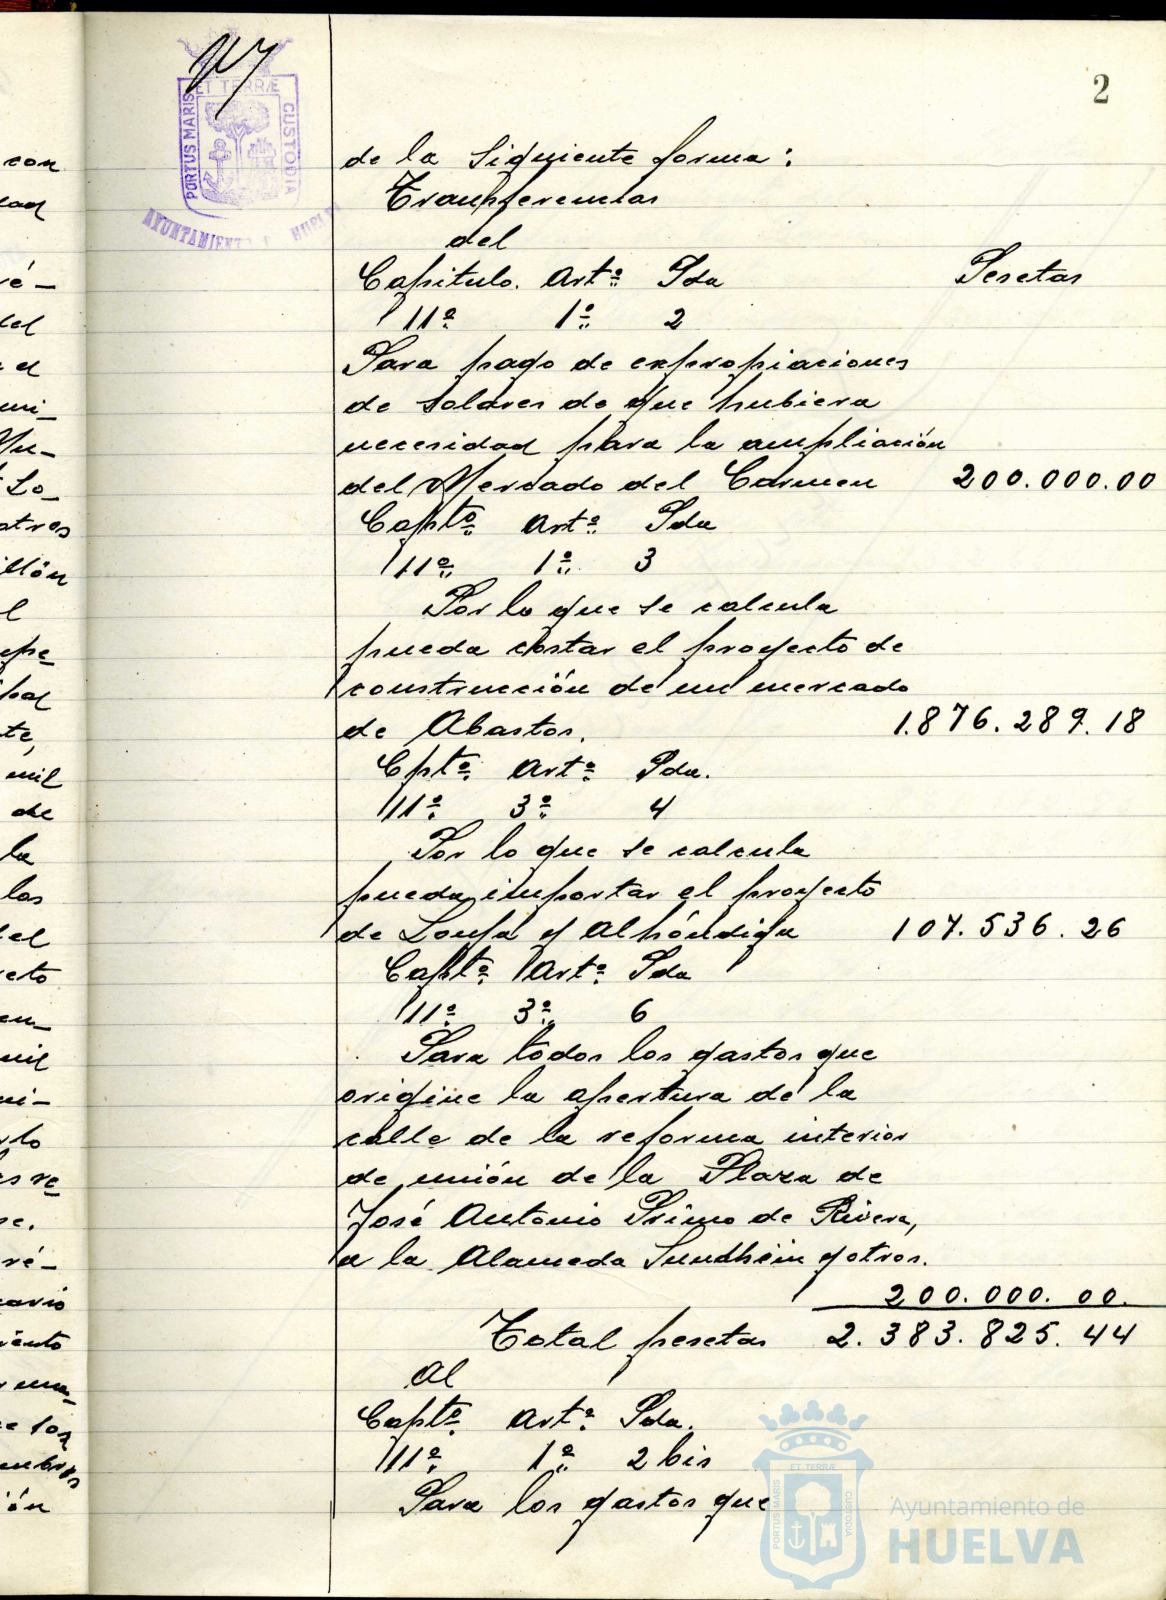 2
PORTUS MARIS
ET TERRÆ
CUSTODIA
AYUNTAMIENTO DE HUELVA
de la siguiente forma:
Transferencias
del
Capitulo. Artº Pda Pesetas
11º 1º 2
Para pago de expropiaciones
de solares de que hubiera
necesidad para la ampliación
del Mercado del Carmen 200.000.00
Captº Artº Pda
11º 1º 3
Por lo que se calcula
pueda costar el proyecto de
construcción de un mercado
de Abastos. 1.876.289.18
Cptº Artº Pda.
11º 3º 4
Por lo que se calcula
pueda importar el proyecto
de Lonja y Alhóndiga 107.536.26
Captº Artº Pda
11º 3º 6
Para todos los gastos que
origine la apertura de la
calle de la reforma interior
de unión de la Plaza de
José Antonio Primo de Rivera,
a la Alameda Sundhein y otros.
200.000.00.
Total pesetas 2.383.825.44
Al
Captº Artº Pda.
11º 1º 2 bis
Para los gastos que
con
dad
ré-
del
el
mi-
Mu-
Lo-
otros
illón
l
epe-
pal
te,
mil
de
la
los
del
reto
en-
mil
ni-
rlo
es re-
se.
ré-
cario
iento
r una-
e los
embros
ión
PORTUS MARIS
ET TERRÆ
CUSTODIA
Ayuntamiento de
HUELVA